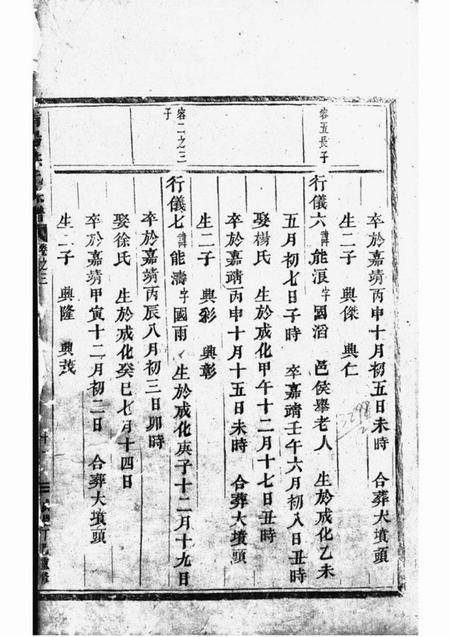 卒於嘉靖丙申十月初五日未時 合葬大墳頭
生二子 興傑 興仁
容五長子
行儀六 諱能浪 字國滔 邑侯舉老人 生於成化乙未
五月初七日子時 卒嘉靖壬午六月初八日丑時
娶楊氏 生於成化甲午十二月十七日丑時
卒於嘉靖丙申十月十五日未時 合葬大墳頭
生二子 興彩 興彰
容二之三子
行儀七 諱能濤 字國雨 生於成化庚子十二月十九日
卒於嘉靖丙辰八月初三日卯時
娶徐氏 生於成化癸巳七月十四日
卒於嘉靖甲寅十二月初二日 合葬大墳頭
生二子 興隆 興茂
卷之三